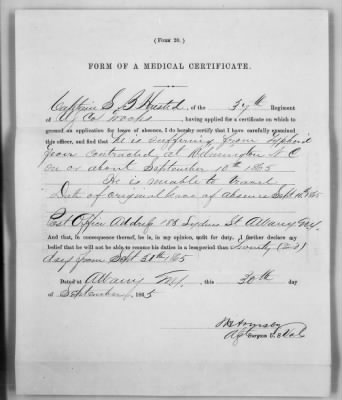 (FORM 20.)
FORM OF A MEDICAL CERTIFICATE.
Captain S B Husted, of the 37th Regiment
of U S Col Troops, having applied for a certificate on which to
ground an application for leave of absence, I do hereby certify that I have carefully examined
this officer, and find that He is suffering from Typhoid
fever contracted at Wilmington N C
on or about September 10th 1865
He is unable to travel
Date of original leave of absence Sept 1865
Post Office Address 188 St Albany N.Y.
And that, in consequence thereof, he is, in my opinion, unfit for duty. I further declare my
belief that he will not be able to resume his duties in a less period than Twenty (20)
days from Sept 30th 1865
Dated at Albany N.Y., this 30th day
of September, 1865
Surgeon U.S.Vols